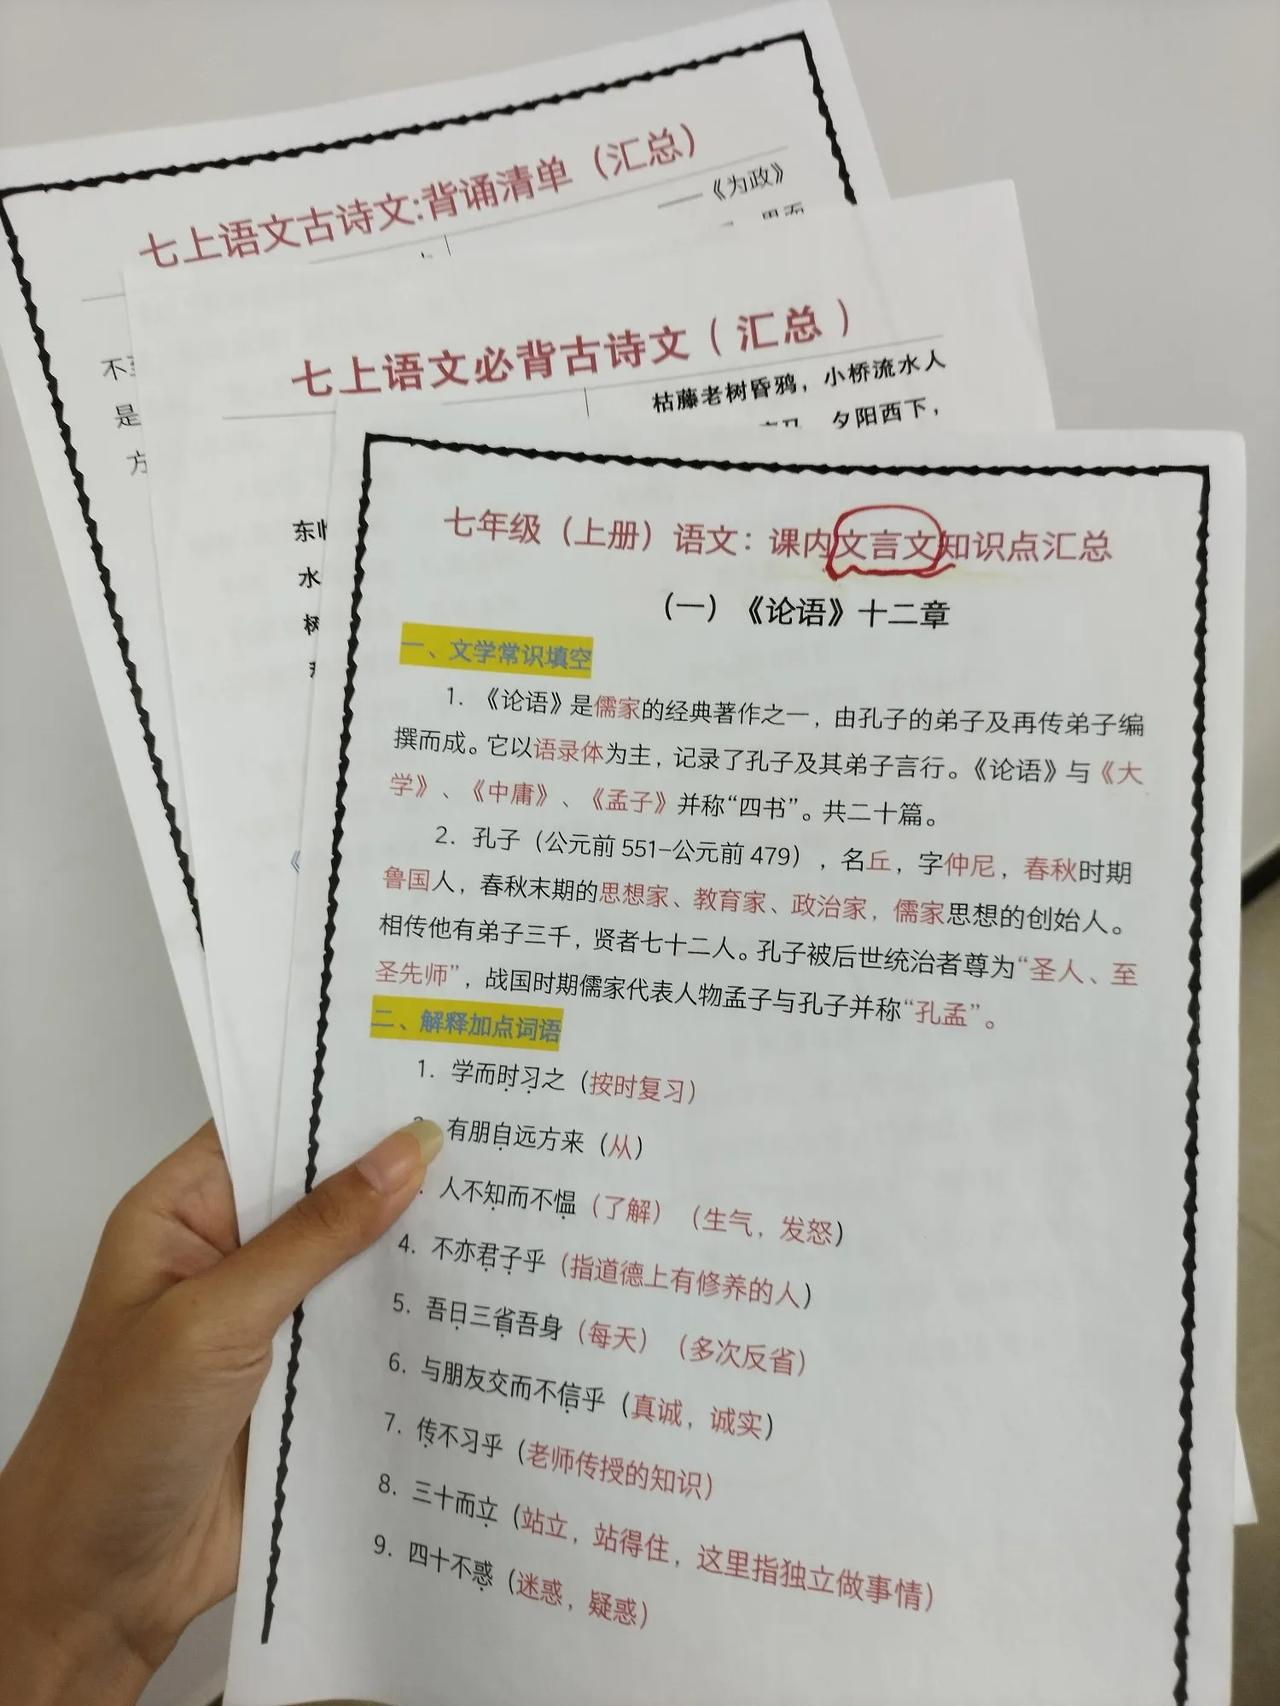 七上语文古诗文:背诵清单（汇总）
——《为政》
不至
是
方
七上语文必背古诗文（汇总）
枯藤老树昏鸦，小桥流水人
夕阳西下，
东临
水
树
七年级（上册）语文：课内文言文知识点汇总
（一）《论语》十二章
一、文学常识填空
1. 《论语》是儒家的经典著作之一，由孔子的弟子及再传弟子编
撰而成。它以语录体为主，记录了孔子及其弟子言行。《论语》与《大
学》、《中庸》、《孟子》并称“四书”。共二十篇。
2. 孔子（公元前 551-公元前 479），名丘，字仲尼，春秋时期
鲁国人，春秋末期的思想家、教育家、政治家，儒家思想的创始人。
相传他有弟子三千，贤者七十二人。孔子被后世统治者尊为“圣人、至
圣先师”，战国时期儒家代表人物孟子与孔子并称“孔孟”。
二、解释加点词语
1. 学而时习之（按时复习）
有朋自远方来（从）
人不知而不愠（了解）（生气，发怒）
4. 不亦君子乎（指道德上有修养的人）
5. 吾日三省吾身（每天）（多次反省）
6. 与朋友交而不信乎（真诚，诚实）
7. 传不习乎（老师传授的知识）
8. 三十而立（站立，站得住，这里指独立做事情）
9. 四十不惑（迷惑，疑惑）